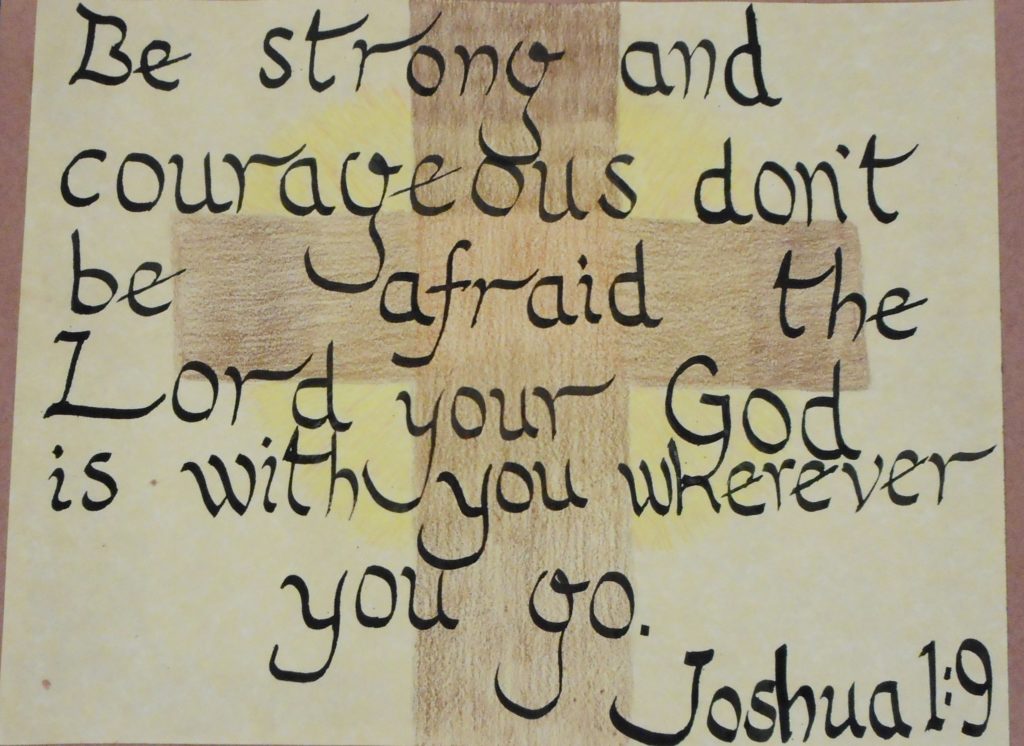 Be strong and
courageous don't
be afraid the
Lord your God
is with you wherever
you go.
Joshua 1:9